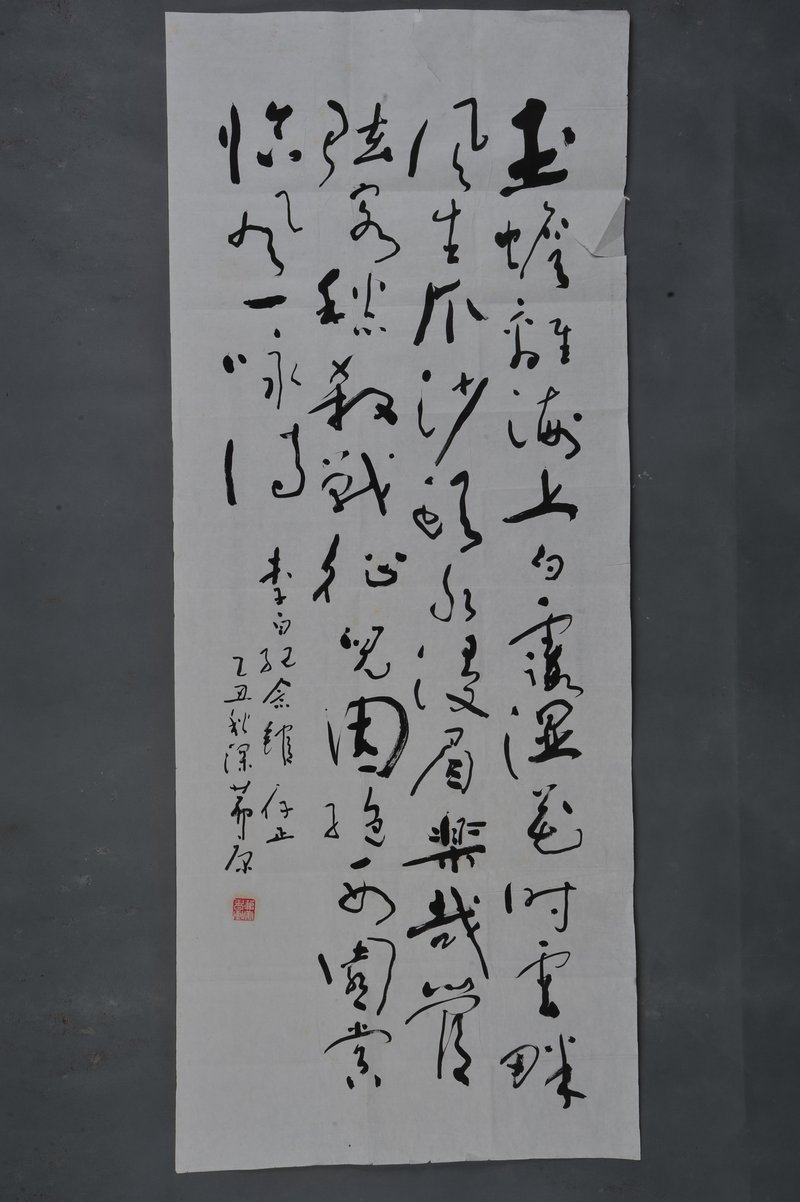 玉蟾離海上白露濕花時雲畔
風生爪沙頭水浸眉樂哉管
弦客愁殺戰征兒因絕西園賞
臨風一詠詩
李白紀念館存正
乙丑秋深